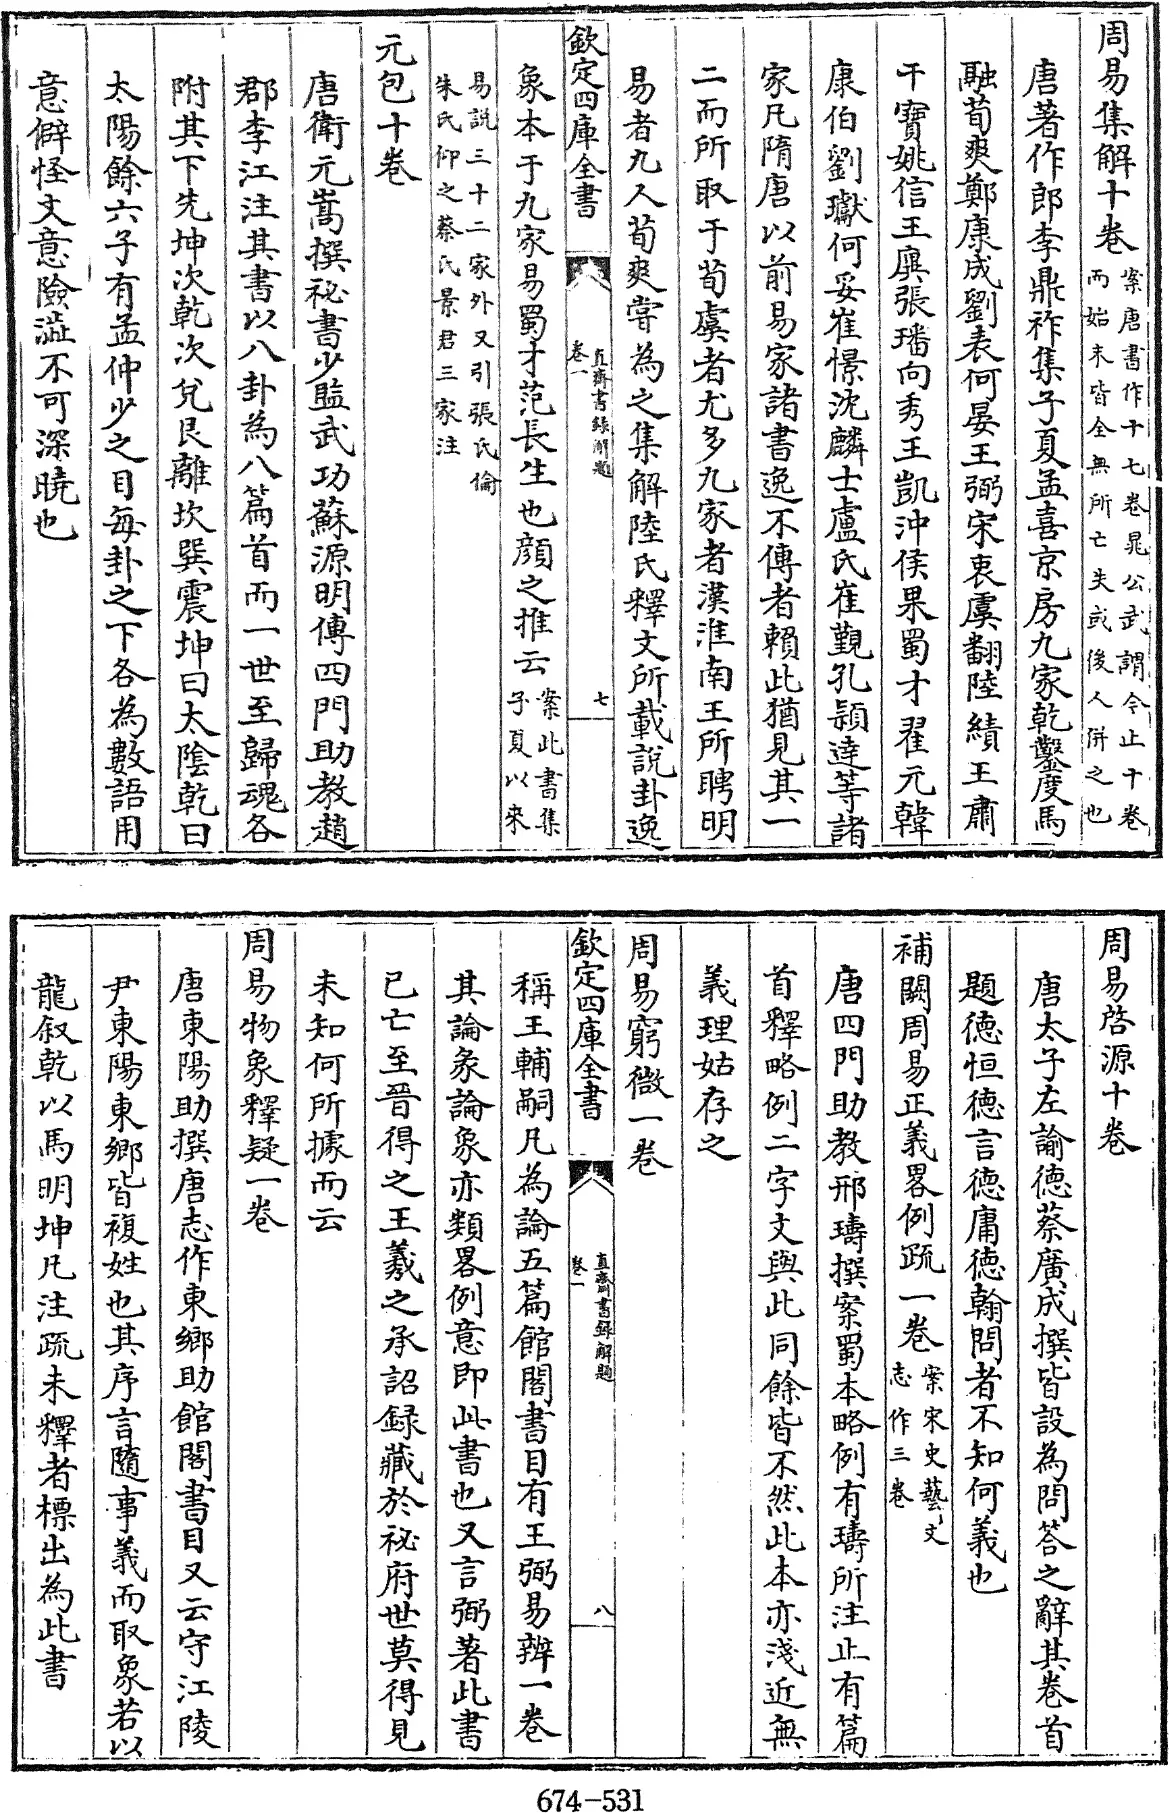 周易集解十卷案唐書作十七卷晁公武謂今止十卷而始末皆全無所亡失或後人併之也
唐著作郎李鼎祚集子夏孟喜京房九家乾鑿度馬
融荀爽鄭康成劉表何晏王弼宋衷虞翻陸績王肅
干寶姚信王廙張璠向秀王凱沖侯果蜀才翟元韓
康伯劉瓛何妥崔憬沈麟士盧氏崔覲孔穎達等諸
家凡隋唐以前易家諸書逸不傳者賴此猶見其一
二而所取于荀虞者尤多九家者漢淮南王所聘明
易者九人荀爽嘗為之集解陸氏釋文所載說卦逸
欽定四庫全書
直齋書錄解題
卷一
七
象本于九家易蜀才范長生也顔之推云案此書集子夏以來
易說三十二家外又引張氏倫朱氏仰之蔡氏景君三家注
元包十卷
唐衛元嵩撰秘書少監武功蘇源明傳四門助教趙
郡李江注其書以八卦為八篇首而一世至歸魂各
附其下先坤次乾次兌艮離坎巽震坤曰太陰乾曰
太陽餘六子有孟仲少之目每卦之下各為數語用
意僻怪文意險澁不可深曉也
周易啓源十卷
唐太子左諭德蔡廣成撰皆設為問答之辭其卷首
題德恒德言德庸德翰問者不知何義也
補闕周易正義畧例疏一卷案宋史藝文志作三卷
唐四門助教邢璹撰案蜀本略例有璹所注止有篇
首釋略例二字文與此同餘皆不然此本亦淺近無
義理姑存之
周易窮微一卷
欽定四庫全書
直齋書録解題
卷一
八
稱王輔嗣凡為論五篇館閣書目有王弼易辨一卷
其論彖論象亦類畧例意即此書也又言弼著此書
已亡至晉得之王羲之承詔録藏於祕府世莫得見
未知何所據而云
周易物象釋疑一卷
唐東陽助撰唐志作東鄉助館閣書目又云守江陵
尹東陽東鄉皆複姓也其序言隨事義而取象若以
龍叙乾以馬明坤凡注疏未釋者標出為此書
674-531